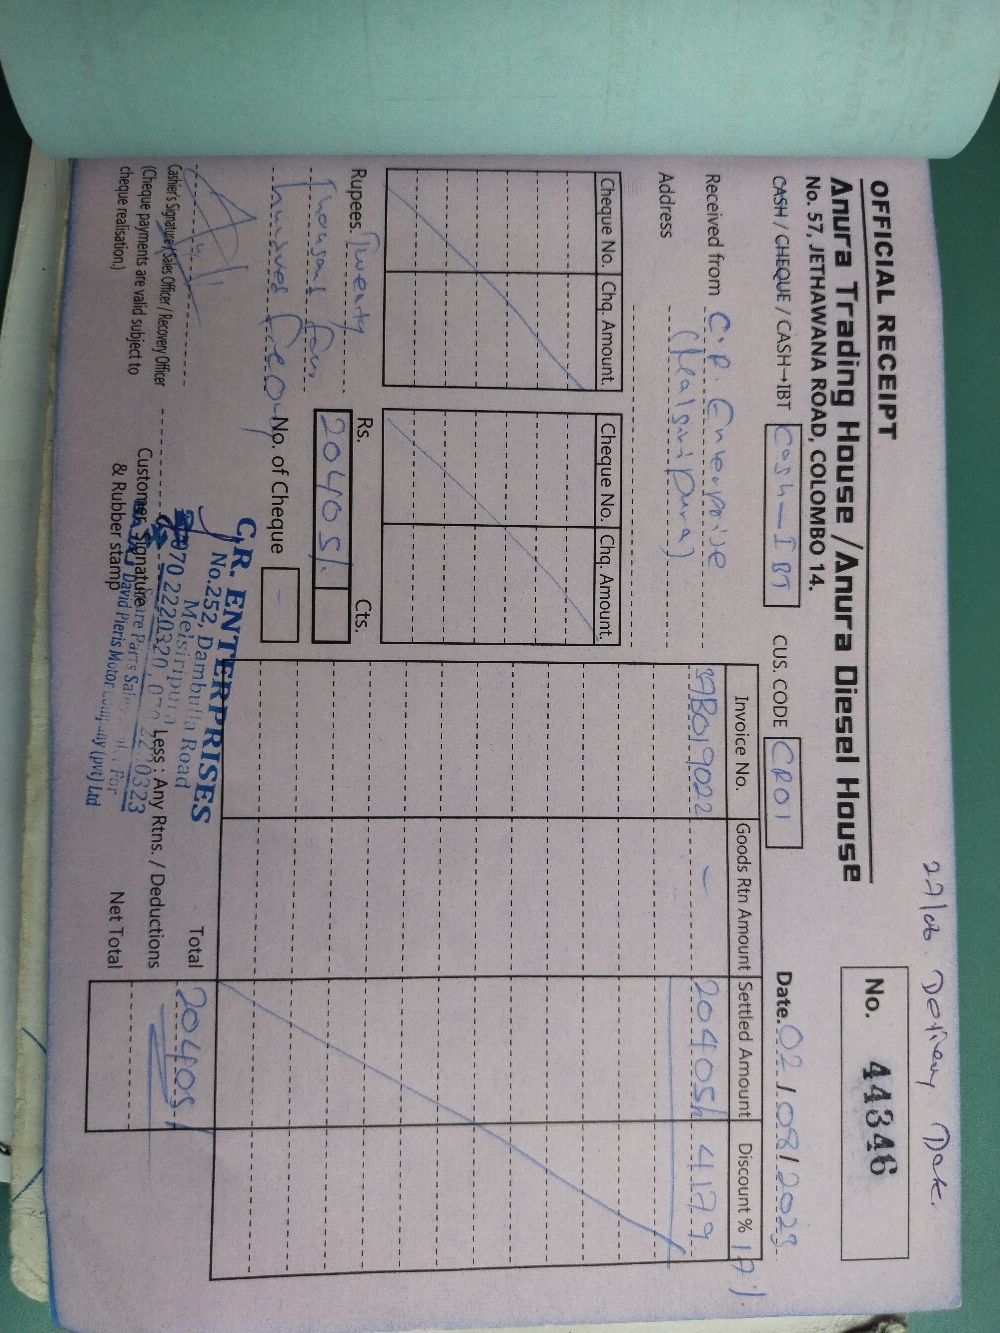 27/06 Delivery Date.
OFFICIAL RECEIPT
No. 44346
Anura Trading House /Anura Diesel House
No. 57, JETHAWANA ROAD, COLOMBO 14.
CASH / CHEQUE / CASH→IBT Cash - IBT CUS. CODE CR01 Date. 02 / 08 / 2023
Received from C.R. Enterprise
Address (Melsiripura)
Cheque No. Chq. Amount Cheque No. Chq. Amount
Invoice No. Goods Rtn Amount Settled Amount Discount % 17%
AB019022 - 20405/. 4179
Rupees. Twenty
Thousand Four
hundred Five only
Rs. Cts.
20405/.
No. of Cheque -
Total 20405/.
Less : Any Rtns. / Deductions
Net Total
Cashier's Signature / Sales Officer / Recovery Officer
(Cheque payments are valid subject to
cheque realisation.)
Customer Signature
& Rubber stamp
C.R. ENTERPRISES
No.252, Dambulla Road
Melsiripura
070 2220320, 070 2220323
Spare Parts Sales For
David Pieris Motor Company (pvt) Ltd